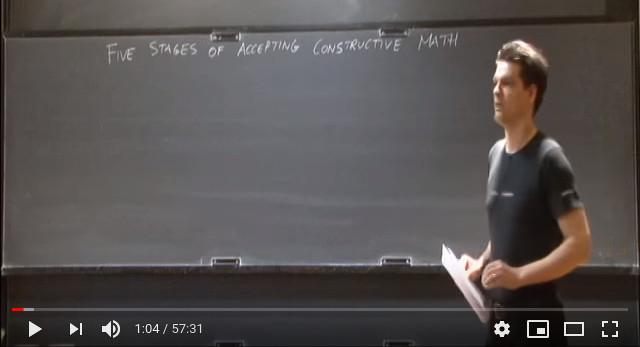 FIVE STAGES OF ACCEPTING CONSTRUCTIVE MATH
1:04 / 57:31